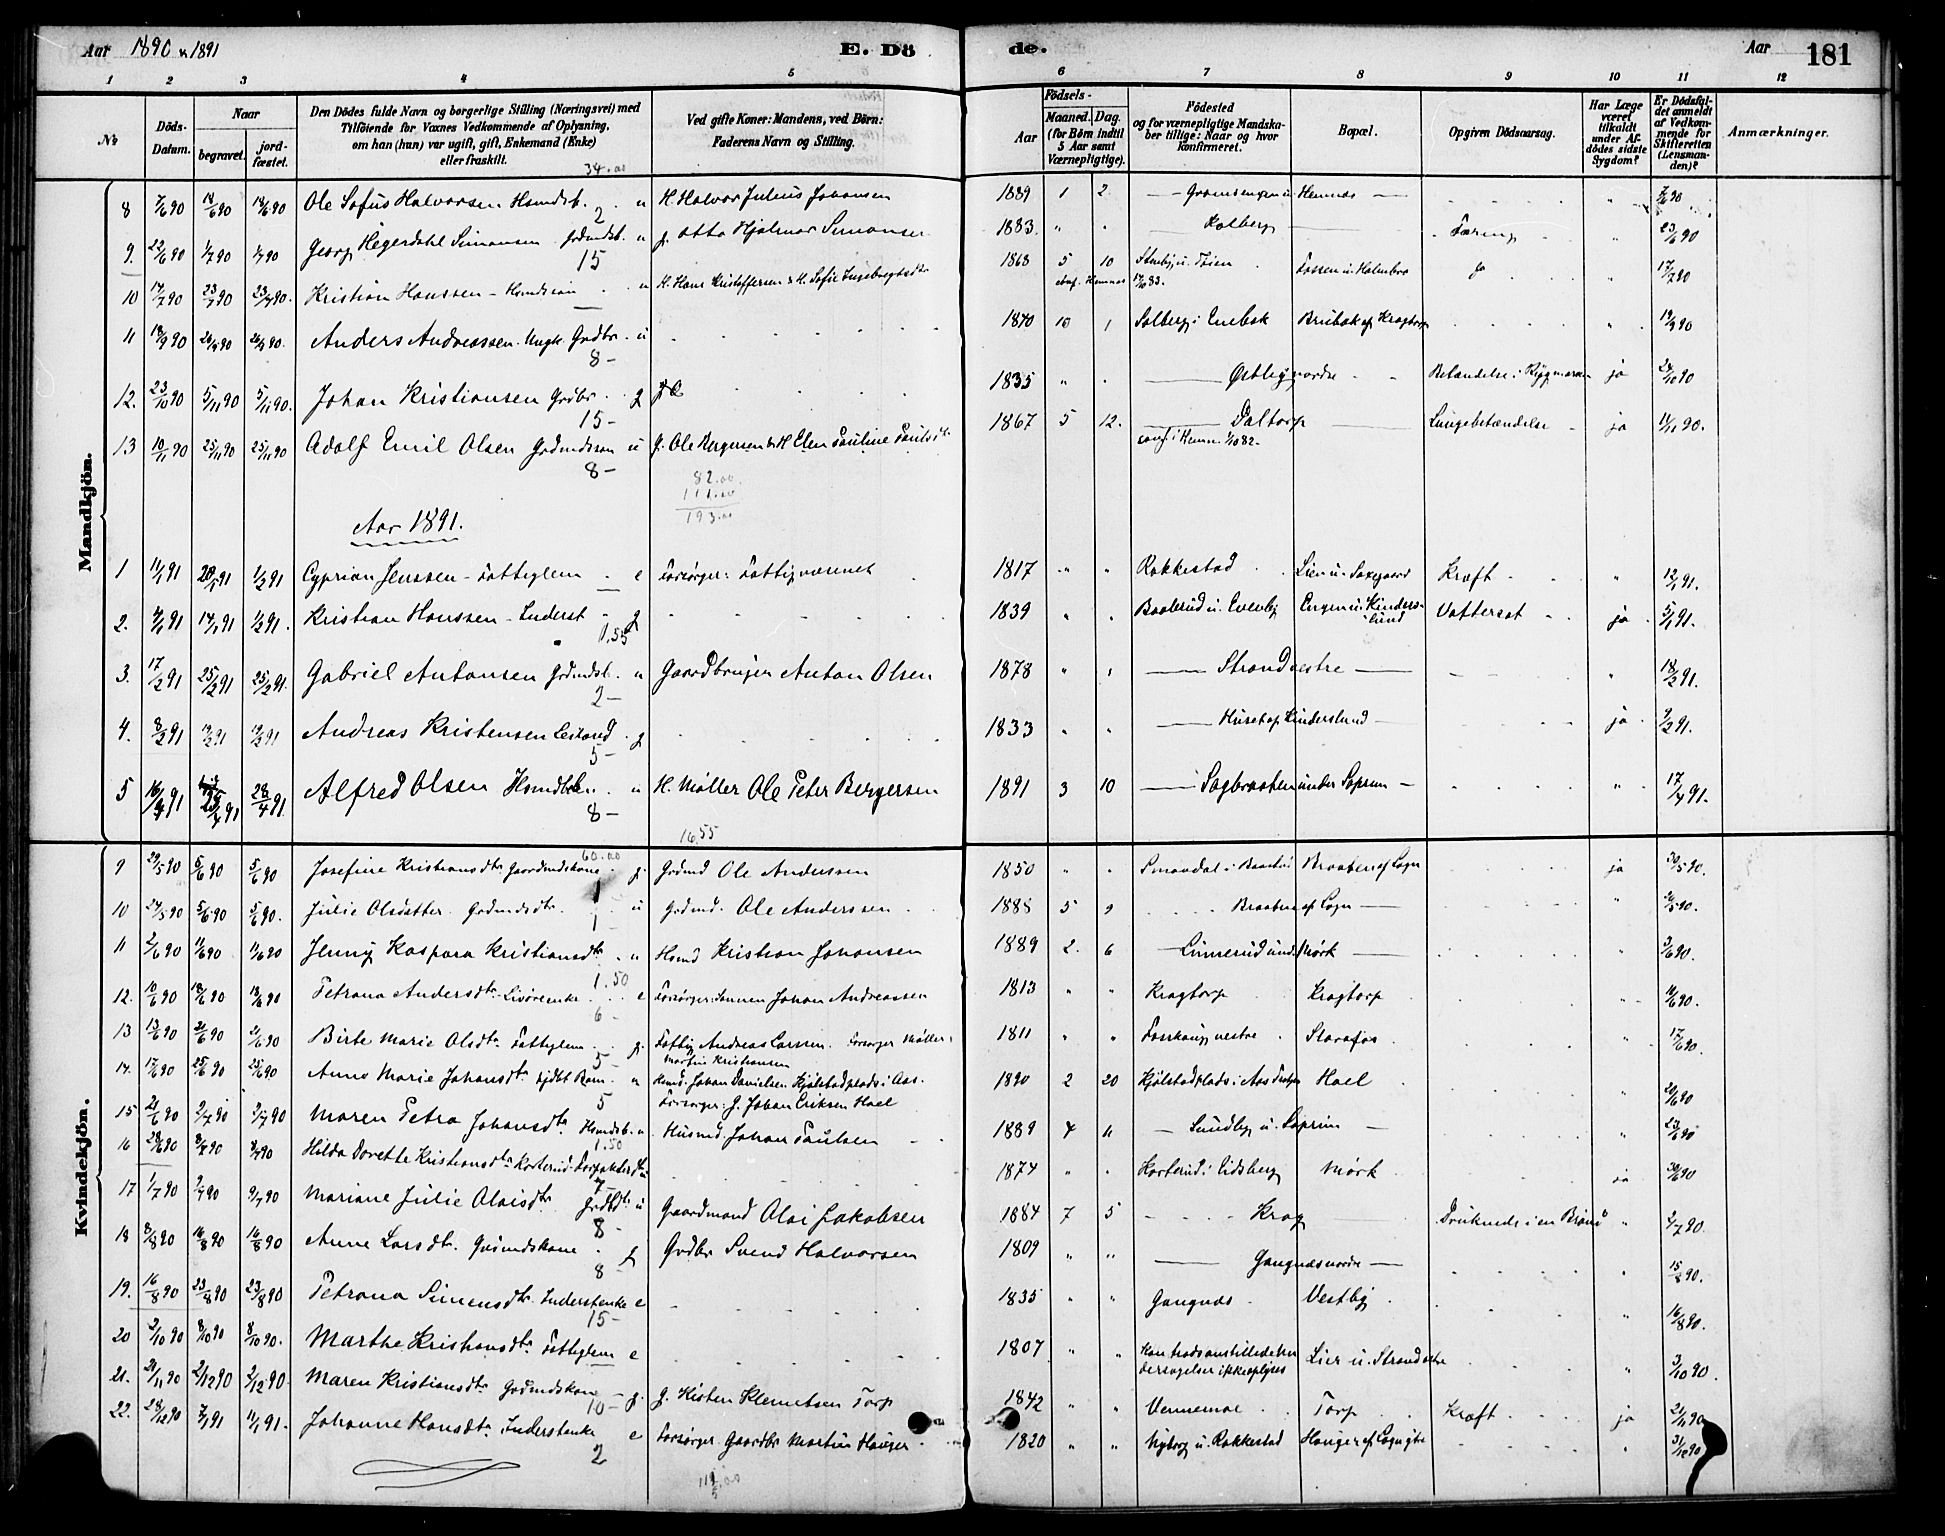 Aar 1890 & 1891 E. Dö de. Aar 181
1 2 3 4 5 6 7 8 9 10 11 12
No Döds-Datum. Naar begravet. jord-fæstet. Den Dödes fulde Navn og borgerlige Stilling (Næringsvei) med Tilföiende for Voxnes Vedkommende af Oplysning, om han (hun) var ugift, gift, Enkemand (Enke) eller fraskilt. Ved gifte Koner: Mandens, ved Börn: Faderens Navn og Stilling. Födsels- Aar Maaned. Dag. (for Börn indtil 5 Aar samt Værnepligtige). Födested og for værnepligtige Mandskaber tillige: Naar og hvor Konfirmeret. Bopæl. Opgiven Dödsaarsag. Har Læge været tilkaldt under Afdödes sidste Sygdom? Er Dödsfaldet anmeldt af Vedkommende for Skifteretten (Lensmanden)? Anmærkninger.
34.00
Mandkjön.
8 7/6 90 18/6 90 18/6 90 Ole Sofus Halvorsen Hsmdsb. u H. Halvor Julius Johansen 1889 1 2 Hemnæs 7/6 90
2
9. 22/6 90 1/7 90 1/7 90 Georg Hegerdahl Simonsen Grdmdsb. u g. Otto Hjalmar Simonsen 1883 Kolberg Tæring 23/6 90
15
10 14/7 90 23/7 90 23/7 90. Kristian Hanssen - Hsmdssøn u H. Hans Kristoffersen & H. Sofie Ingebregtsdtr 1868 5 10 Stenby u. Tøien Fossen u. Holmbro ja 17/7 90
conf. Hemnæs 1/10 83.
11 18/9 90 26/9 90 26/9 90. Anders Andreassen. Ungk. Grdbr. u 1870 10 1 Solberg i Enebak Bribak af Kragtorp 19/9 90
8-
12. 23/10 90 5/11 90 5/11 90. Johan Kristiansen Grdbr. g 1835 Østbynordre Betændelse i Rygmarven ja 24/10 90
15-
13 10/11 90 25/11 90 25/11 90 Adolf Emil Olsen Grdmdssøn u g. Ole Bergersen & H Elen Pauline Paulsdtr 1867 5 12. Daltorp Lungebetændelse ja 11/11 90.
conf i Hemn. 1/10 82-
8-
82.00
111.00
193.00
Aar 1891.
1 11/1 91 20/1 91 1/2 91 Cyprian Jenssen - Fattiglem e Forsørger: Fattigvæsenet 1817 Rakkestad Lien u. Saxegaard Kræft 12/1 91.
2. 4/1 91 14/1 91 1/2 91. Kristian Hanssen - Inderst g 1839 Baalerud u. Evenby Engen u. Kinderslund Vattersot ja 5/1 91.
0.55
3. 17/2 91 25/2 91 25/2 91. Gabriel Antonsen Grdmdsb. u Gaardbruger Anton Olsen 1878 Strand vestre 18/2 91.
2-
4. 8/2 91 19/2 91 19/2 91 Andreas Kristensen g 1833 Huset af Kinderslund ja 9/2 91.
5-
5 16/4 91 28/4 91 28/4 91. Alfred Olsen Hsmdbrn. u H. Møller Ole Peter Bergersen 1891 3 10 Sagbraaten under Soprim 17/4 91.
8-
16.55
Kvindekjön.
60.00
9 29/5 90 5/6 90 5/6 90 Josefine Kristiansdtr Gaardmdskone g. Grdmd Ole Anderssen 1850 Smaadal i Braaten af Sogn ja 30/5 90.
1
10 24/5 90 5/6 90 5/6 90. Julie Olsdatter. Grdmdsdtr. u Grdmd. Ole Anderssen 1888 5 9 Braaten af Sogn
1
11 2/6 90 11/6 90 11/6 90 Jenny Kaspara Kristiansdtr. u Hsmd Kristian Johansen 1889 2. 6 Linnerud und. Mørk 3/6 90.
1.50
12. 10/6 90 18/6 90 18/6 90 Petrona Andersdtr. Livøreenke e Forsørger: Sønnen Johan Andreassen 1813 Kragtorp Kragtorp 11/6 90.
6-
13 13/6 90 21/6 90 21/6 90 Birte Marie Olsdtr. Fattiglem g. Fattig Andreas Larssen. Forsørger Møller 1811 Foskaug vestre Starafos 17/6 90.
5- Martin Kristiansen
14. 17/6 90 25/6 90 25/6 90 Anna Marie Johansdtr. u Hsmd. Johan Danielsen Kjølstadplads i Aas. 1890 2 20 Kjølstadplads i Aas Hoel 20/6 90
5 Forsørger: G. Johan Eriksen Hoel
15 21/6 90 2/7 90 2/7 90 Maren Petra Johansdtr. Hsmdsb. u Husmd. Johan Paulsen 1889 4 11 Sundby u. Soprim 23/6 90
1.50
16 29/6 90 8/7 90 8/7 90 Hilda Dorette Kristiansdtr Korterud Forpakterdtr. 1874 Korterud i Eidsberg Mørk ja 30/6 90
7-
17 1/7 90 9/7 90 9/7 90 Mariane Julie Olaisdtr Grdbdtr. u Gaardmand Olai Jakobsen 1884 7 5 Krog Druknede i en Brønd 2/7 90.
8-
18 8/8 90 16/8 90 16/8 90 Anne Larsdtr. Grdmdskone g Grdbr Svend Halvorsen 1809 Gangnæsnordre 15/8 90.
8
19. 16/8 90 23/8 90 23/8 90 Petrona Simensdtr. Inderstenke e 1835 Gangnæs Vestby 16/8 90.
15-
20 2/10 90 8/10 90 8/10 90. Marthe Kristiansdtr. Fattiglem e 1807 Kan trods anstillede Undersøgelser ikke oplyses Lier u. Strand østre 3/10 90.
21. 21/11 90 2/12 90 2/12 90. Maren Kristiansdtr Grdmdskone g. g. Kisten Klemetsen Torp 1842 Vennemoe Torp Kræft ja 21/11 90
10-
22. 28/12 90 7/1 91 11/1 91. Johanne Hansdtr. Inderstenke e Forsørger Gaardbr Martin Hauger 1820 Nyborg u. Rakkestad Hauger af Sogn gbr 31/12 90
2